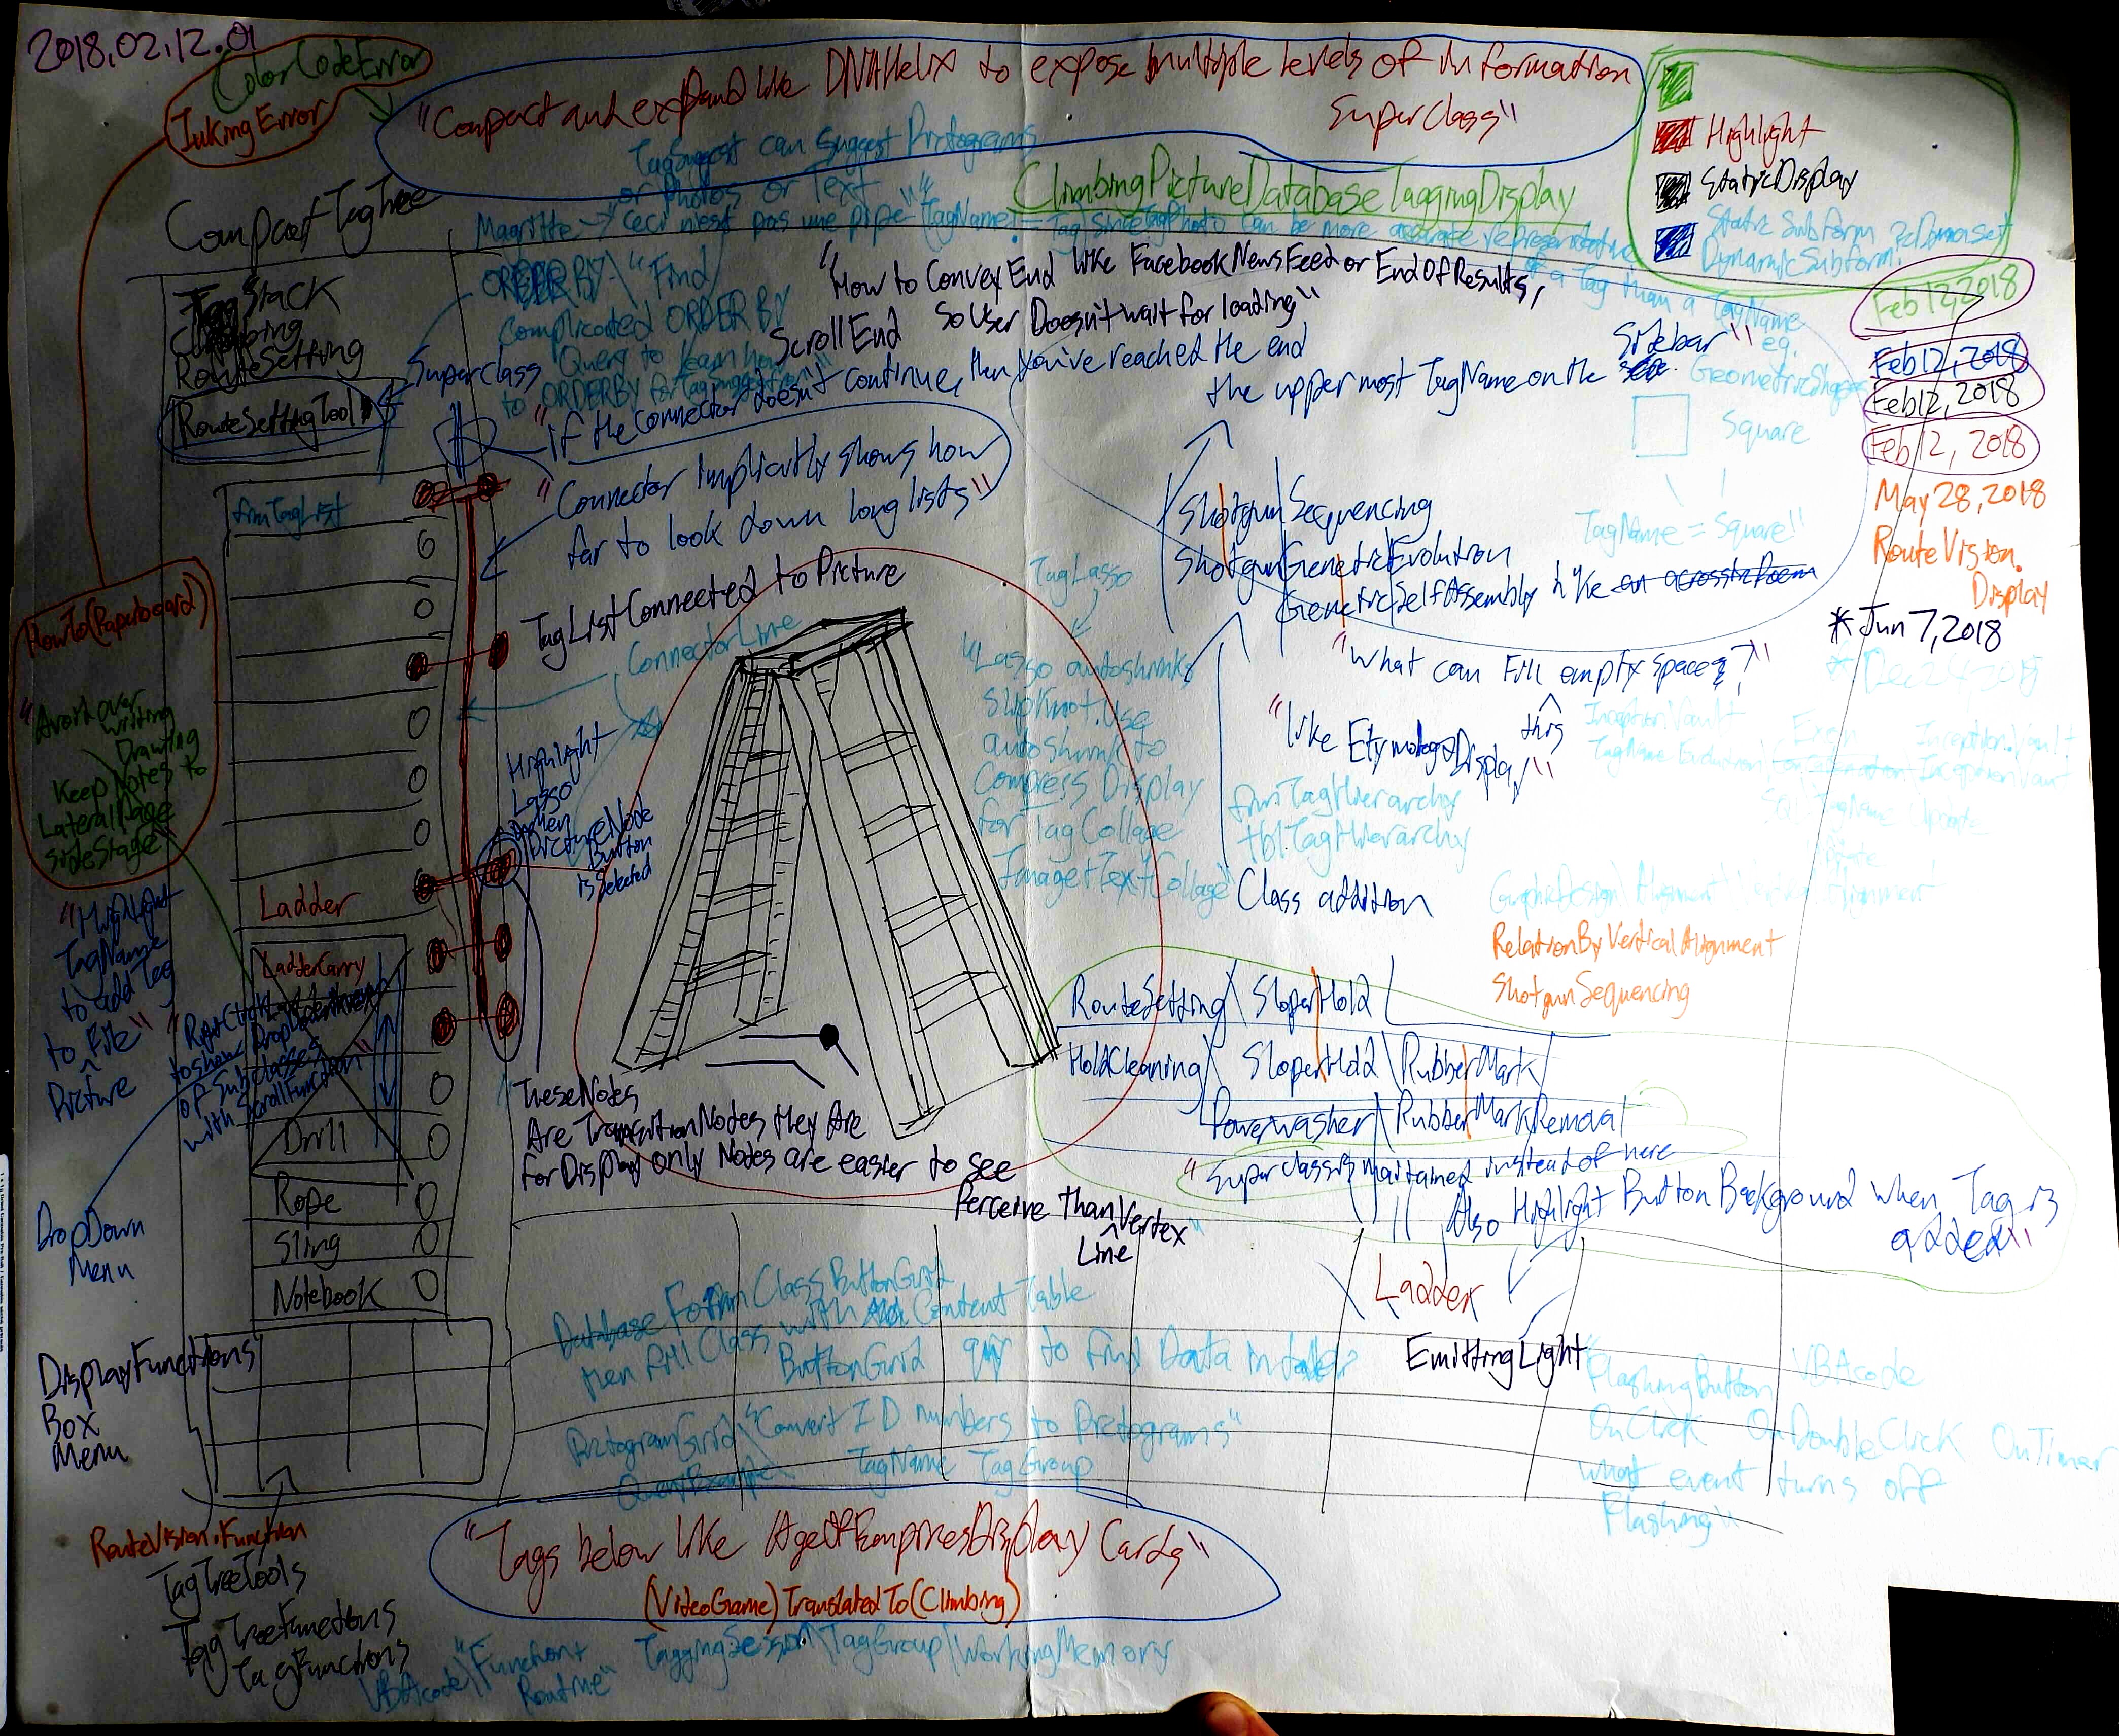 2018.02.12.01
ColorCodeError
InkingError
"Compact and expand like DNAHelix to expose multiple levels of information
Superclass"
Highlight
StaticDisplay
Static Subform
DynamicSubform?
TagSuggest can suggest Pictograms
or Photos or Text
ClimbingPictureDatabaseTaggingDisplay
Magritte → ceci n'est pas une pipe "TagName != Tag since TagPhoto can be more accurate representative
of a Tag than a TagName
CompactTagTree
TagStack
Climbing
RouteSetting
RouteSettingTool
Superclass
ORDER BY \ "Find
Complicated ORDER BY
Query to learn how
to ORDERBY for TagSuggestion"
"How to Convey End like FacebookNewsFeed or EndOfResults,
So User Doesn't wait for loading"
ScrollEnd
"if the connector doesn't continue, then you've reached the end
the upper most TagName on the
Sidebar"
eg.
GeometricShape
Square
TagName = Square"
Feb 12, 2018
Feb 12, 2018
Feb 12, 2018
Feb 12, 2018
May 28, 2018
RouteVision.
Display
* Jun 7, 2018
frmTagList
"Connector implicitly shows how
far to look down long lists"
Shotgun\Sequencing
Shotgun\GeneticEvolution
Genetic\SelfAssembly like an acrosticPoem
TagListConnected to Picture
ConnectorLine
TagLasso
"Lasso autoshrinks
slipknot. Use
autoshrink to
Compress Display
for TagCollage
Image+TextCollage"
"What can Fill empty space?"
this
"like EtymologyDisplay"
InceptionVault
frmTagHierarchy
tblTagHierarchy
Class addition
HowTo(Paperboard)
"Avoid over
writing
Drawing
Keep Notes to
LateralPage
SideStage
Highlight
Lasso
when
PictureNode
Button
is selected
Ladder
LadderCarry
"Highlight
TagName
to add Tag
to File"
Picture
"RightClick
to show DropDownMenu
of Subclasses
with ScrollFunction"
Drill
Rope
Sling
Notebook
DropDown
Menu
RelationByVerticalAlignment
ShotgunSequencing
RouteSetting\SloperHold
HoldCleaning\SloperHold\RubberMark
Powerwasher\RubberMarkRemoval
"Superclass is maintained instead of here
Also Highlight Button Background when Tag is
added"
TheseNotes
Are TransitionNodes they Are
for Display only Nodes are easier to see
Perceive Than Vertex
Line
Database Form Class ButtonGrid
then fill Class with Content Table
ButtonGrid qry to find Data in table
PictogramGrid\"Convert ID numbers to Pictograms"
QueryExample TagName TagGroup
Ladder
EmittingLight
FlashingButton VBAcode
OnClick OnDoubleClick OnTimer
what event turns off
Flashing"
DisplayFunctions
Box
Menu
RouteVision.Function
TagTreeTools
TagTreeFunctions
TagFunctions
"Tags below like AgeOfEmpiresDisplay Cards"
(VideoGame)TranslatedTo(Climbing)
VBAcode\"Function+
Routine"
TaggingSession\TagGroup\WorkingMemory